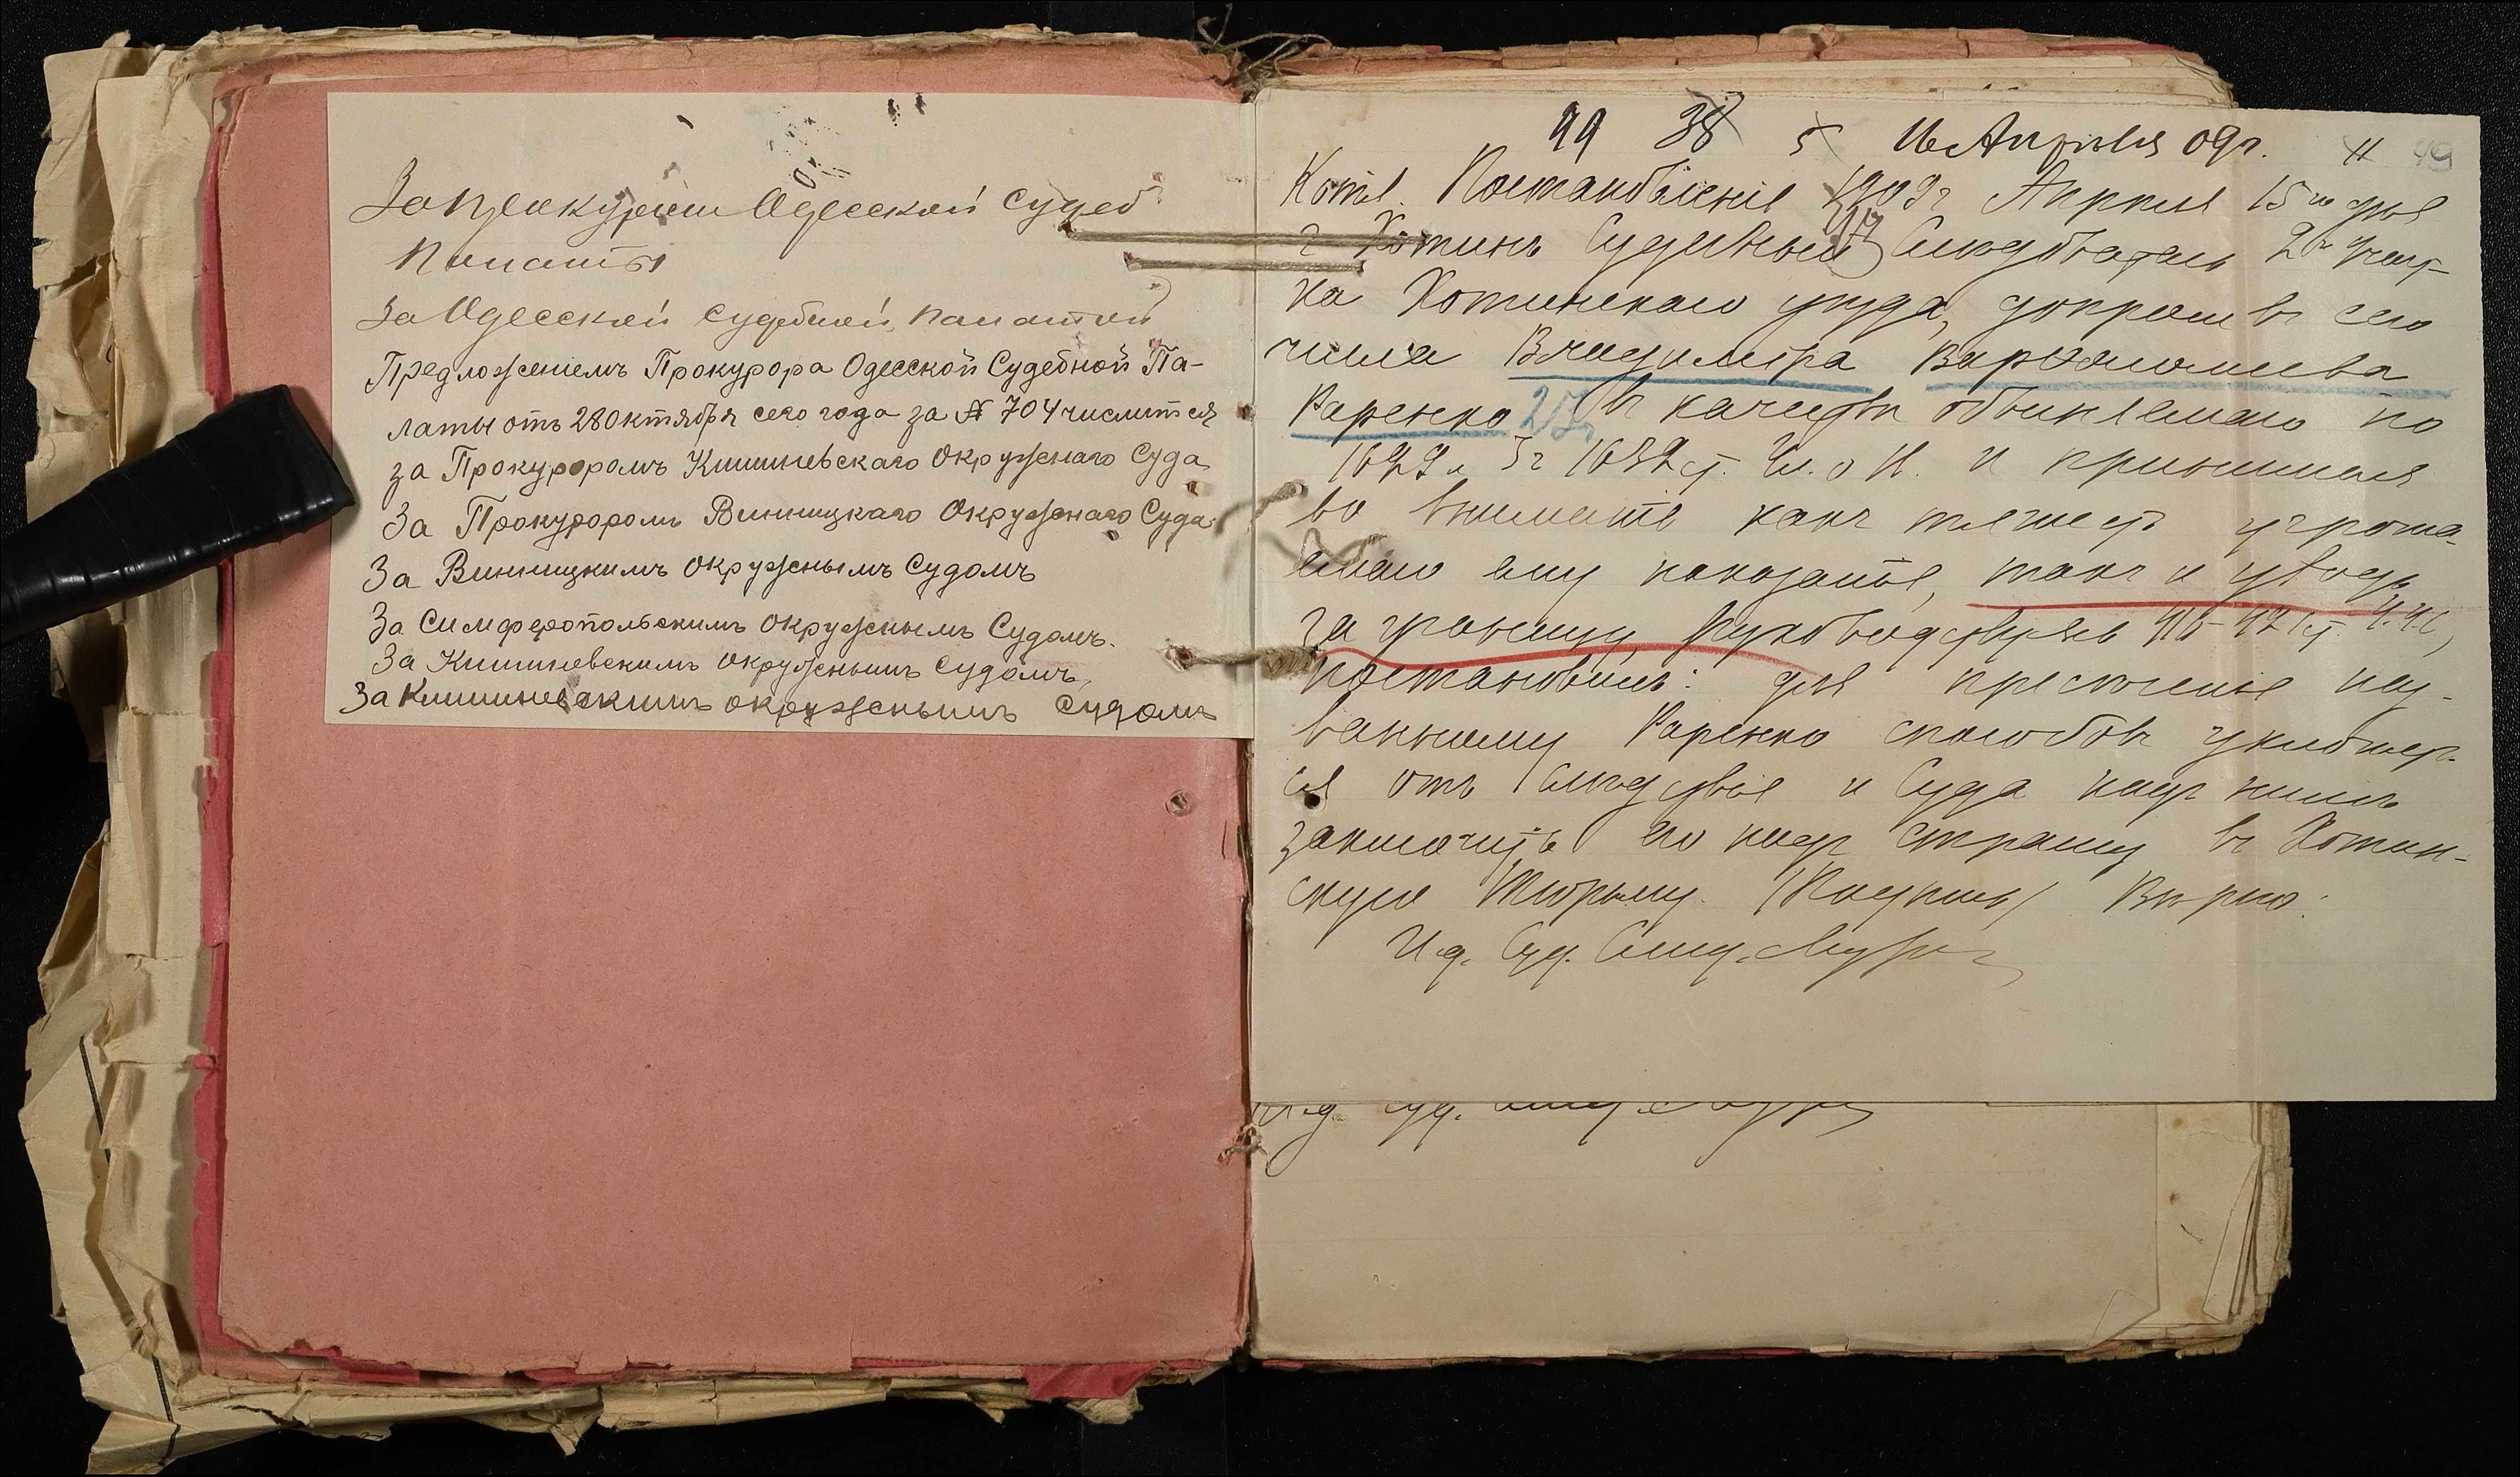 За Прокуроромъ Одесской Судеб
Палаты
За Одесской Судебной Палатой
Предложеніемъ Прокурора Одесской Судебной Па-
латы отъ 28 октября сего года за № 704 числится
за Прокуроромъ Кишиневскаго Окружнаго Суда
За Прокуроромъ Винницкаго Окружнаго Суда
За Винницкимъ Окружнымъ Судомъ
За Симферопольскимъ Окружнымъ Судомъ.
За Кишиневскимъ Окружнымъ Судомъ,
За Кишиневскимъ окружнымъ Судомъ
99 38 5 16 Апрѣля 09 г. 11 49
Копія. Постановленіе 1909 г Апрѣля 15го дня
г Хотинъ Судебный Слѣдователь 2го Участ-
ка Хотинскаго уѣзда, допросивъ сего
числа Владиміра Варѳоломеева
Каренко 27л въ качествѣ обвиняемаго по
1632 ст. Ул. о Н. и принимая
во вниманіе какъ тяжесть угрожа-
емаго ему наказанія, такъ и уводъ
за границу, руководствуясь 416-421 ст. У.У.С,
постановилъ: для пресѣченія наз-
ванному Каренко способовъ уклонять-
ся отъ Слѣдствія и Суда надъ нимъ
заключить его подъ стражу въ Хотин-
скую Тюрьму. (Подпись) Вѣрно:
И.д. Суд. Слѣд.
И.д. Суд. Слѣд.